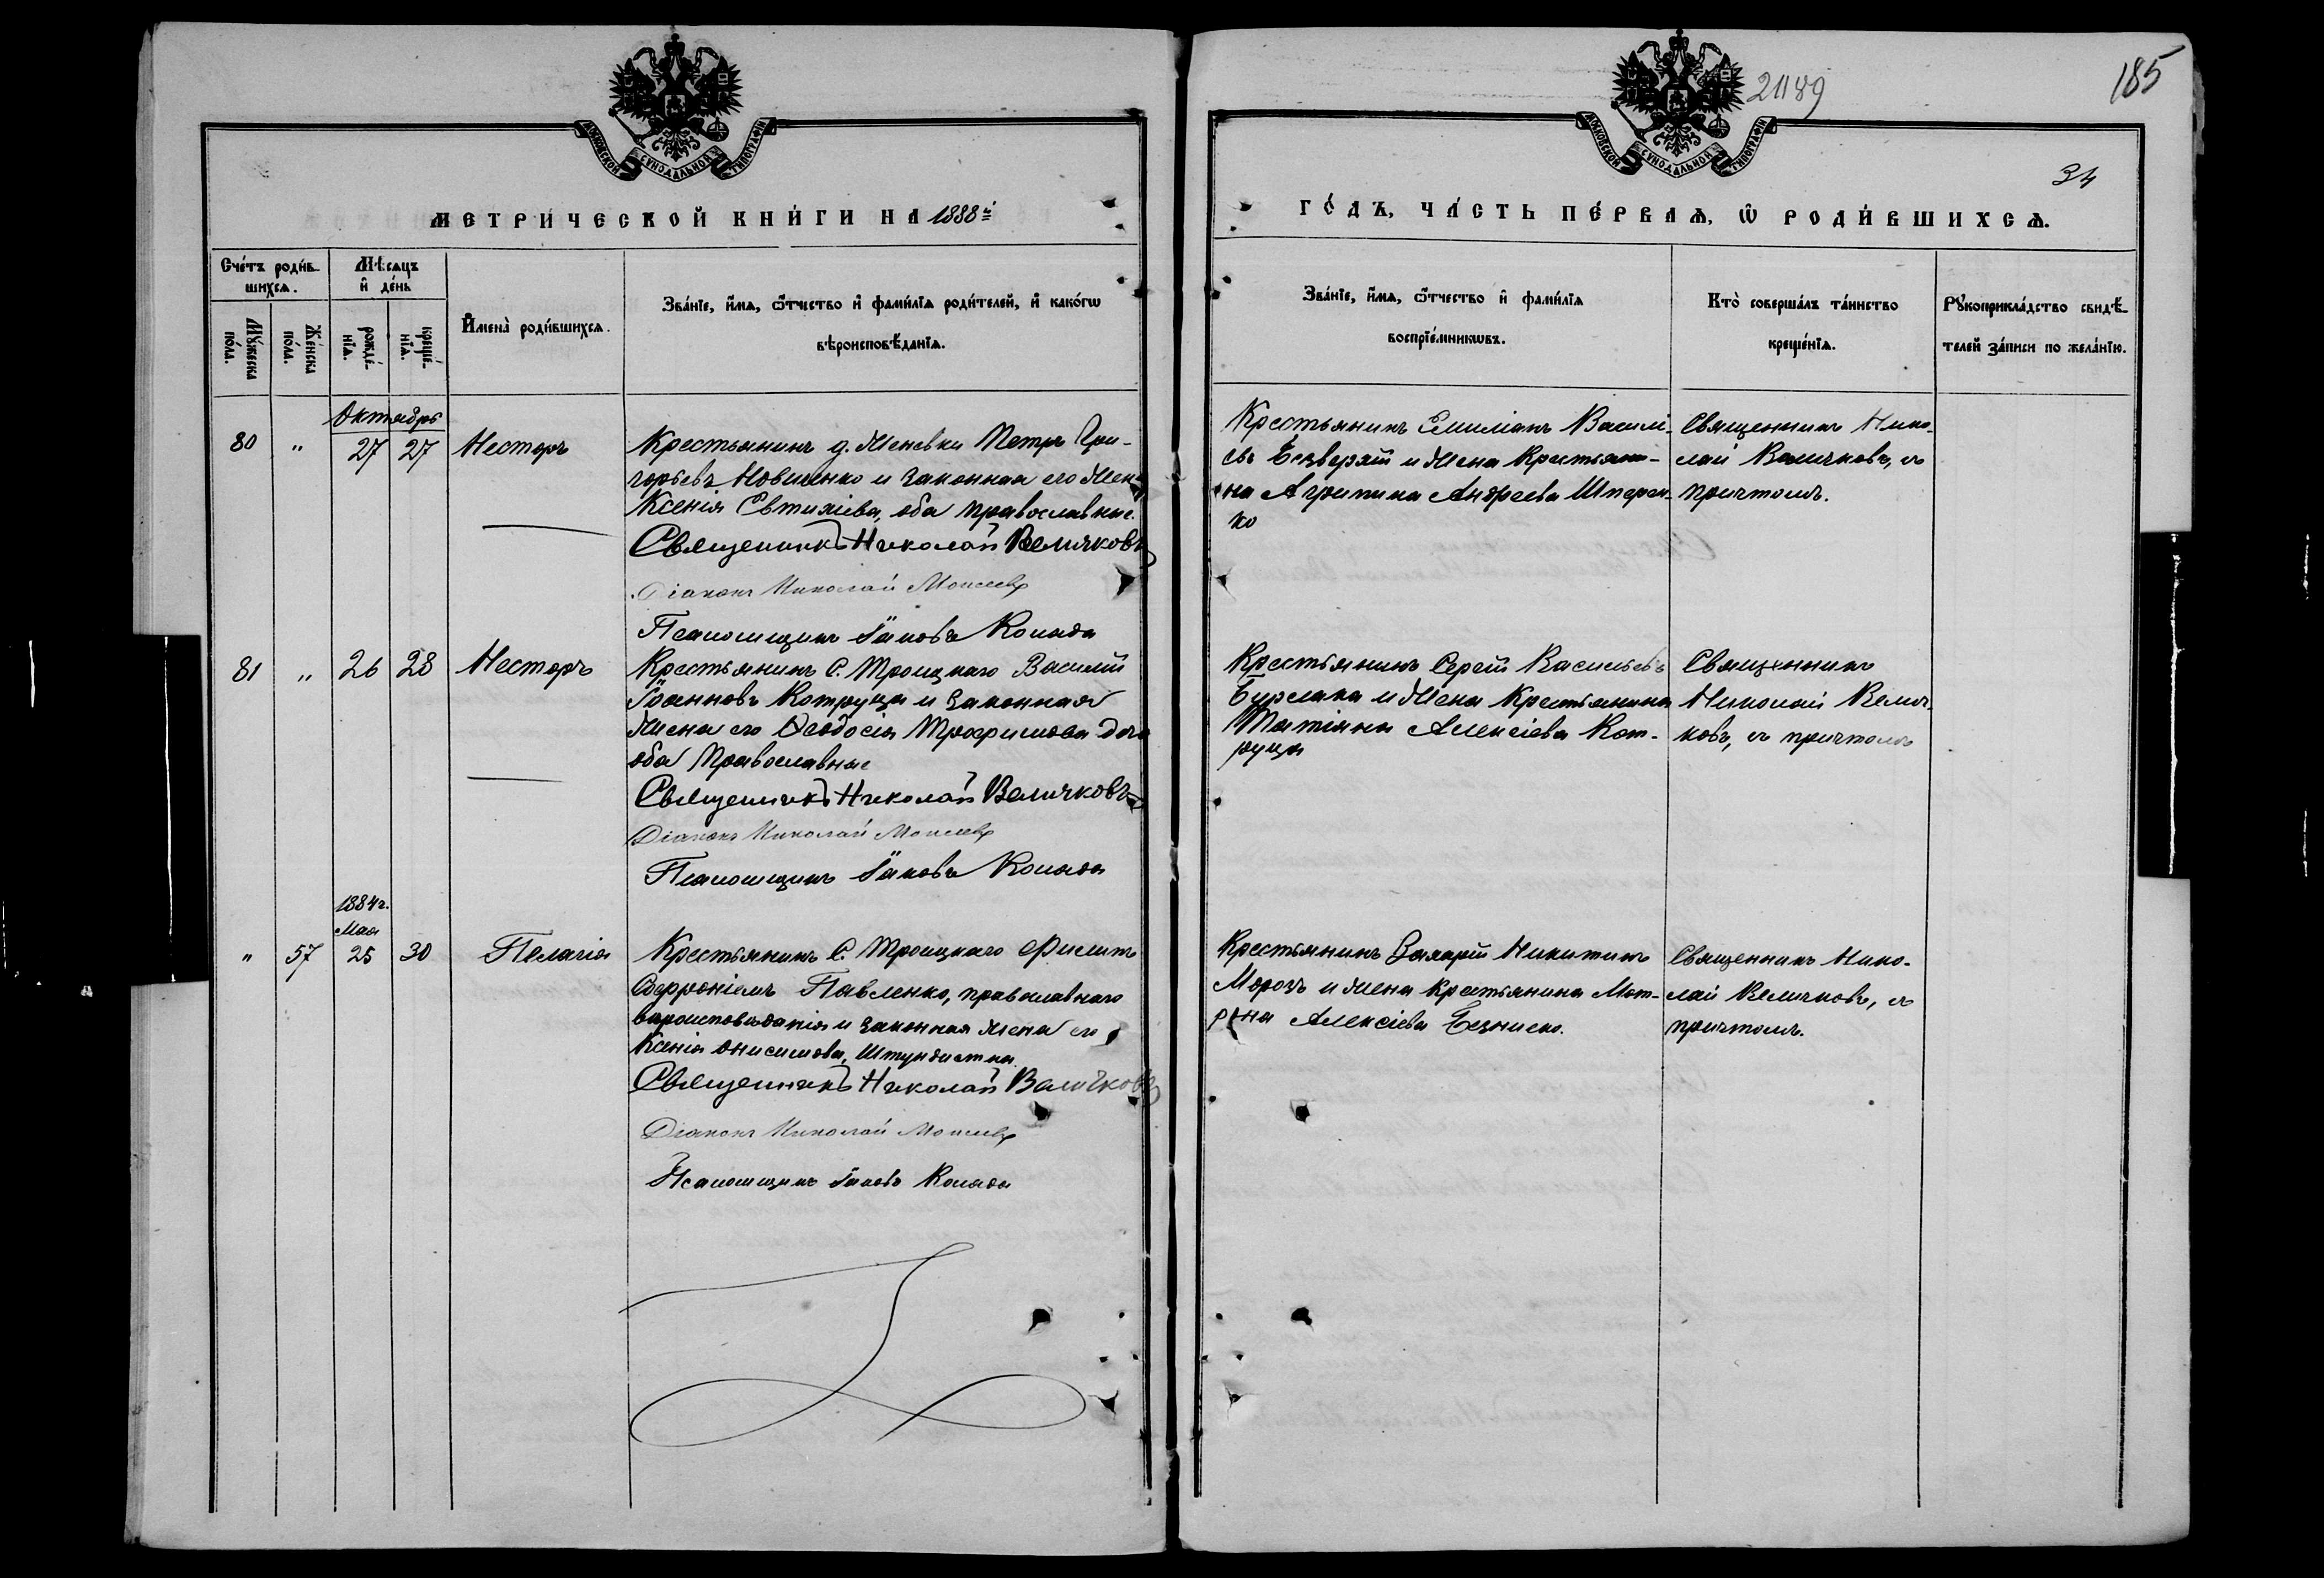 2189
185
34
МОСКОВСКОЙ СѴНОДАЛЬНОЙ ТИПОГРАФІИ
МОСКОВСКОЙ СѴНОДАЛЬНОЙ ТИПОГРАФІИ
МЕТРИ́ЧЕСКОЙ КНИ́ГИ НА 1888й
ГО́ДЪ, ЧА́СТЬ ПЕ́РВАѦ, Ѽ РОДИ́ВШИХСѦ.
Сче́тъ роди́в-
шихсѧ.
Мѣ́сѧцъ
и҆ де́нь
Мꙋ́жеска
по́ла.
Же́нска
по́ла.
рожде́-
нїѧ.
креще́-
нїѧ.
И҆мена̀ роди́вшихсѧ.
Зва́нїе, и҆́мѧ, ѻ҆́тчество и҆ фами́лїѧ роди́телей, и҆ како́гѡ
вѣроисповѣ́данїѧ.
Зва́нїе, и҆́мѧ, ѻ҆́тчество и҆ фами́лїѧ
воспрїе́мникѡвъ.
Кто̀ соверша́лъ та́инство
креще́нїѧ.
Рꙋкоприкла́дство свидѣ́-
телей за́писи по жела́нїю.
Октябрь
80 " 27 27 Несторъ
Крестьянинъ д. Женевки Петръ Гри-
горьевъ Новшенко и законная его жена
Ксенія Евтихіева, оба православные.
Священникъ Николай Величковъ
Діаконъ Николай Моисеевъ
Псаломщикъ Іаковъ Колада
Крестьянинъ Емиліанъ Василі-
евъ Безверхій и жена Крестьяни-
на Агрипина Андреева Шперен-
ко
Священникъ Нико-
лай Величковъ, съ
причтомъ.
81 " 26 28 Несторъ
Крестьянинъ С. Троицкаго Василій
Іоанновъ Котруца и законная
жена его Ѳеодосія Трофимова
оба Православные
Священникъ Николай Величковъ
Діаконъ Николай Моисеевъ
Псаломщикъ Іаковъ Колада
Крестьянинъ Сергій Васильевъ
Бурлака и жена Крестьянина
Татіяна Алексіева Кот-
руца
Священникъ
Николай Велич-
ковъ, съ причтомъ
1884 г.
Мая
" 57 25 30 Пелагія
Крестьянинъ С. Троицкаго Филипъ
Софроніевъ Павленко, православнаго
вѣроисповѣданія и законная жена его
Ксенія Онисимова, Штундистка.
Священникъ Николай Величковъ
Діаконъ Николай Моисеевъ
Псаломщикъ Іаковъ Колада
Крестьянинъ Захарій Никитинъ
Морозъ и жена крестьянина Мат-
рона Алексіева Безниско.
Священникъ Нико-
лай Величковъ, съ
причтомъ.